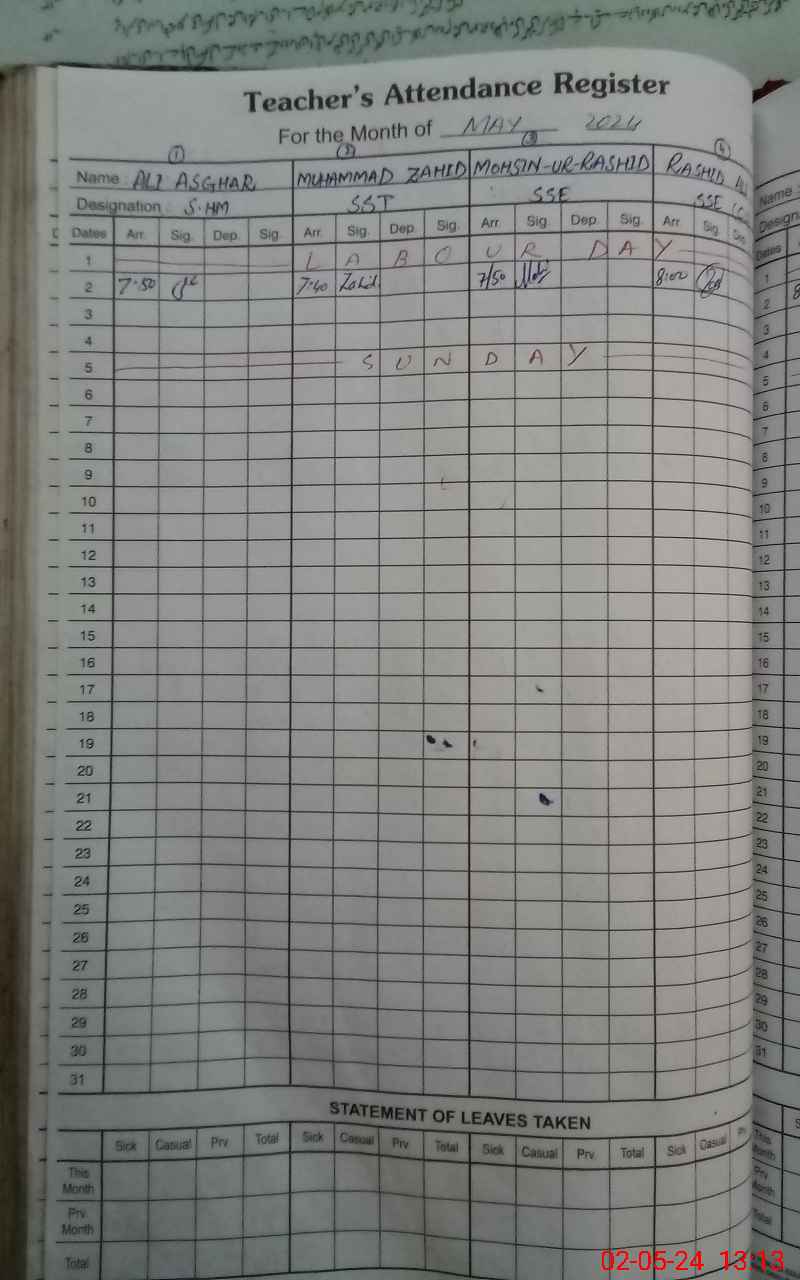 Teacher's Attendance Register
For the Month of MAY 2024
1 2 3 4
Name ALI ASGHAR MUHAMMAD ZAHID MOHSIN-UR-RASHID RASHID
Designation S.HM SST SSE SSE
Dates Arr. Sig. Dep. Sig. Arr. Sig. Dep. Sig. Arr. Sig. Dep. Sig. Arr Sig.
1 LABOUR DAY
2 7·50 7:40 Zahid 7/50 8:00
3
4
5 SUNDAY
6
7
8
9
10
11
12
13
14
15
16
17
18
19
20
21
22
23
24
25
26
27
28
29
30
31
STATEMENT OF LEAVES TAKEN
Sick Casual Prv. Total Sick Casual Prv. Total Sick Casual Prv. Total Sick Casual
This Month
Prv. Month
Total
Name
Dates
1
2
3
4
5
6
7
8
9
10
11
12
13
14
15
16
17
18
19
20
21
22
23
24
25
26
27
28
29
30
31
This Month
Prv Month
Total
02-05-24 13:13